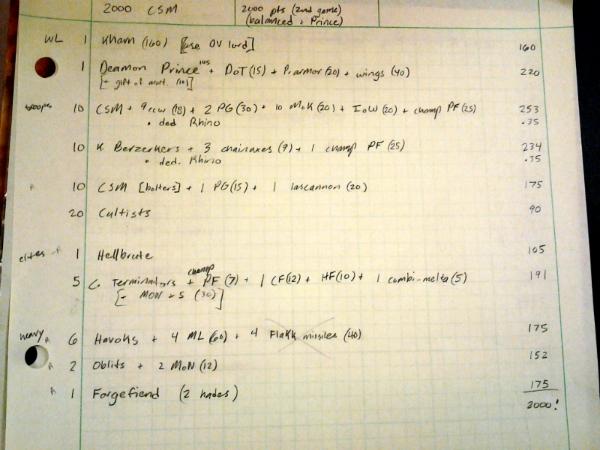 2000 CSM 2000 pts (2nd game)
(balanced, Prince)
WL 1 Kharn (160) [use DV lord] 160
1 Deamon Prince 145 + DoT (15) + P. armor (20) + wings (40) 220
[- gift of mut. (10)]
troops 10 CSM + 9 ccw (18) + 2 PG (30) + 10 MoK (20) + IoW (20) + champ PF (25) 253
• ded Rhino .35
10 K Berzerkers + 3 chainaxes (9) + 1 champ PF (25) 234
• ded. Rhino .35
10 CSM [bolters] + 1 PG (15) + 1 lascannon (20) 175
20 Cultists 90
elites 1 Hellbrute 105
5 Terminators + champ PF (7) + 1 CF (12) + HF (10) + 1 combi-melta (5) 191
[- MON + 5 (30)]
heavy 6 Havoks + 4 ML (60) + 4 Flakk missiles (40) 175
2 Oblits + 2 MoN (12) 152
1 Forgefiend (2 hades) 175
2000!